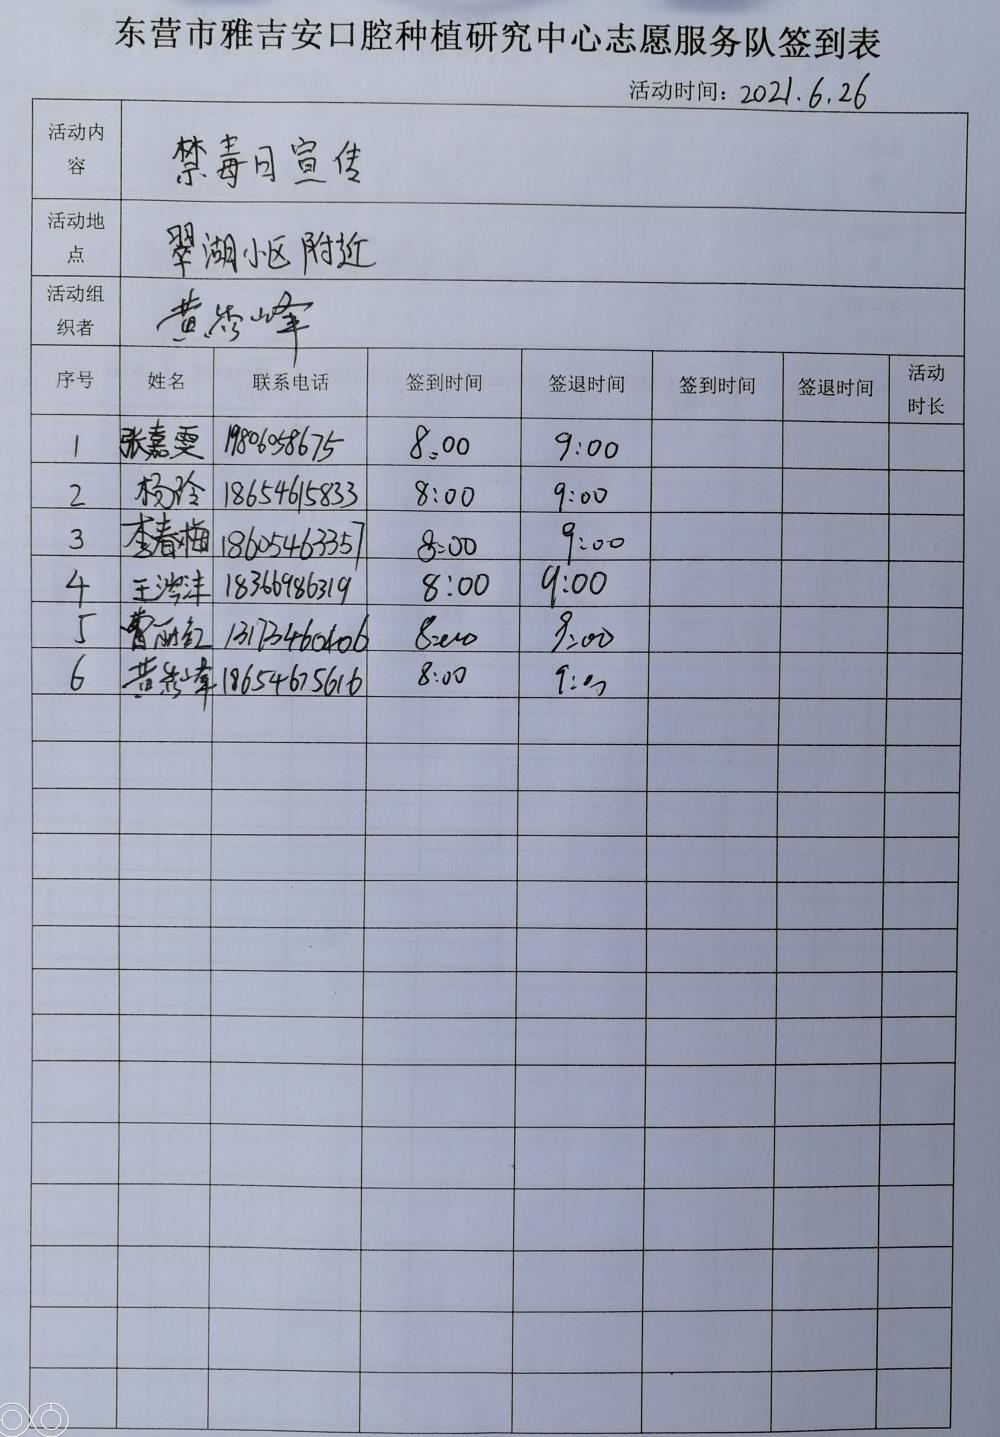 东营市雅吉安口腔种植研究中心志愿服务队签到表
活动时间：2021.6.26
活动内容 禁毒日宣传
活动地点 翠湖小区附近
活动组织者 黄岑峰
序号 姓名 联系电话 签到时间 签退时间 签到时间 签退时间 活动时长
1 张嘉雯 19806058675 8:00 9:00
2 杨玲 18654615833 8:00 9:00
3 李春梅 18605463357 8:00 9:00
4 王 18366986319 8:00 9:00
5 曹丽红 13173460406 8:00 9:00
6 黄岑峰 18654675616 8:00 9:00